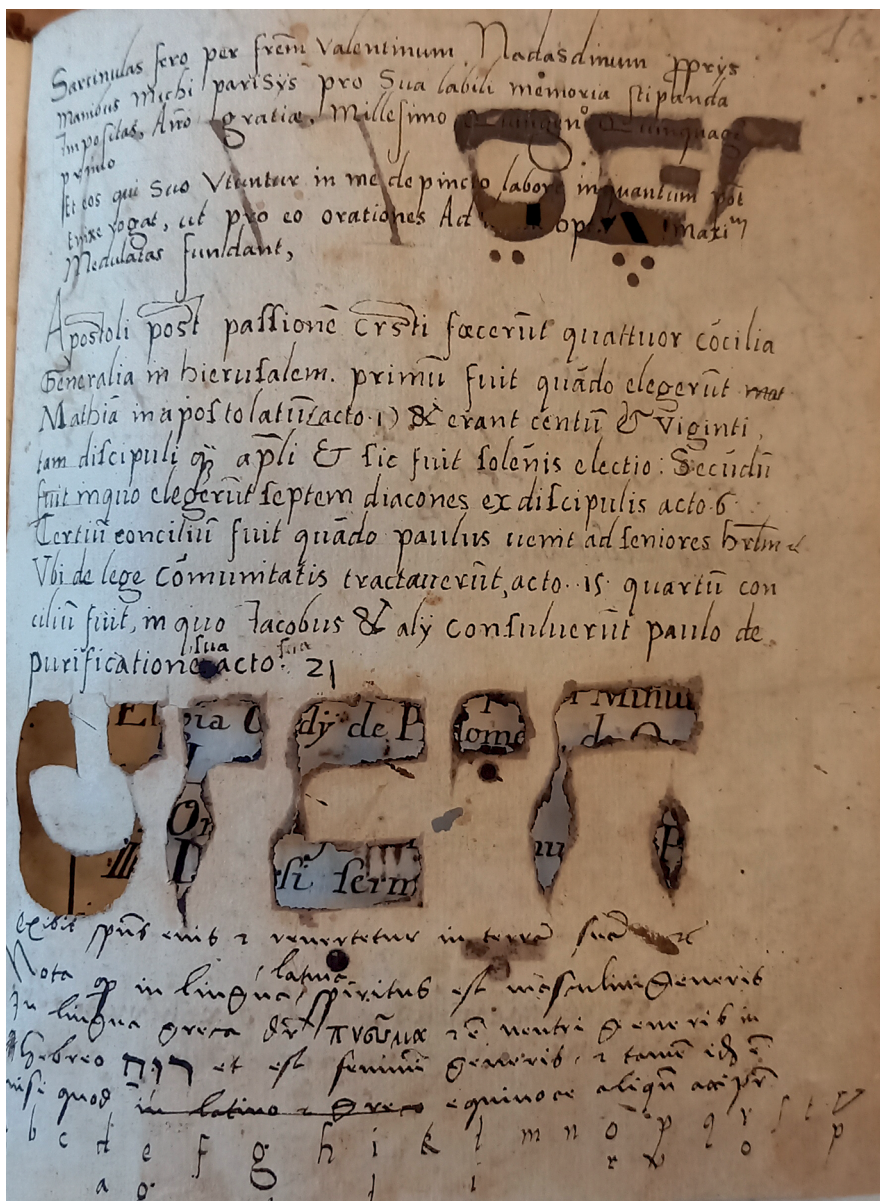 Sarcinulas fero per frem̄ Valentinum Nadasdinum p̄prys
manibus Michi parisys pro Sua labili memoria stipanda
Impositas, Año gratiæ, Millesimo Quingenº Quinquage
primo
Et eos qui Suo Vtuntur in me depincto labore inquantum pōt
enixe rogat, ut pro eo orationes Ad opt. maxiᵐ
Medulatas fundant,
Apostoli post passionē Crsti fœcerūt quattuor cōcilia
Generalia in hierusalem. primū fuit quādo elegerūt mat
Mathiā in apostolatū (acto.1) & erant centū & Viginti,
tam discipuli q̄ apl̄i & sic fuit solēnis electio: Secūdū
fuit inquo elegerūt septem diacones ex discipulis acto.6
Tertiū conciliū fuit quādo paulus uenit ad seniores hrlm̄
Vbi de lege cōmunitatis tractauerūt, acto..15. quartū con
ciliū fuit, in quo Jacobus & aly consuluerūt paulo de
sua sua
purificatione acto. 21
El gia dy de P Minu
tome de
Or
si serm
exibit sp̄us eius 2 revertetur in terrā suā
Nota qp in lingua latina spiritus est masculini Generis
In lingua greca dr̄ πνευμα 2 ē neutri generis in
Hebreo רוח et est feminini generis, 2 tamē idē ē
nisi quod in latino 2 greco equivoce aliqn̄ accipr̄
b c d e f g h i k l m n o p q r s t v
a g i i r x o p